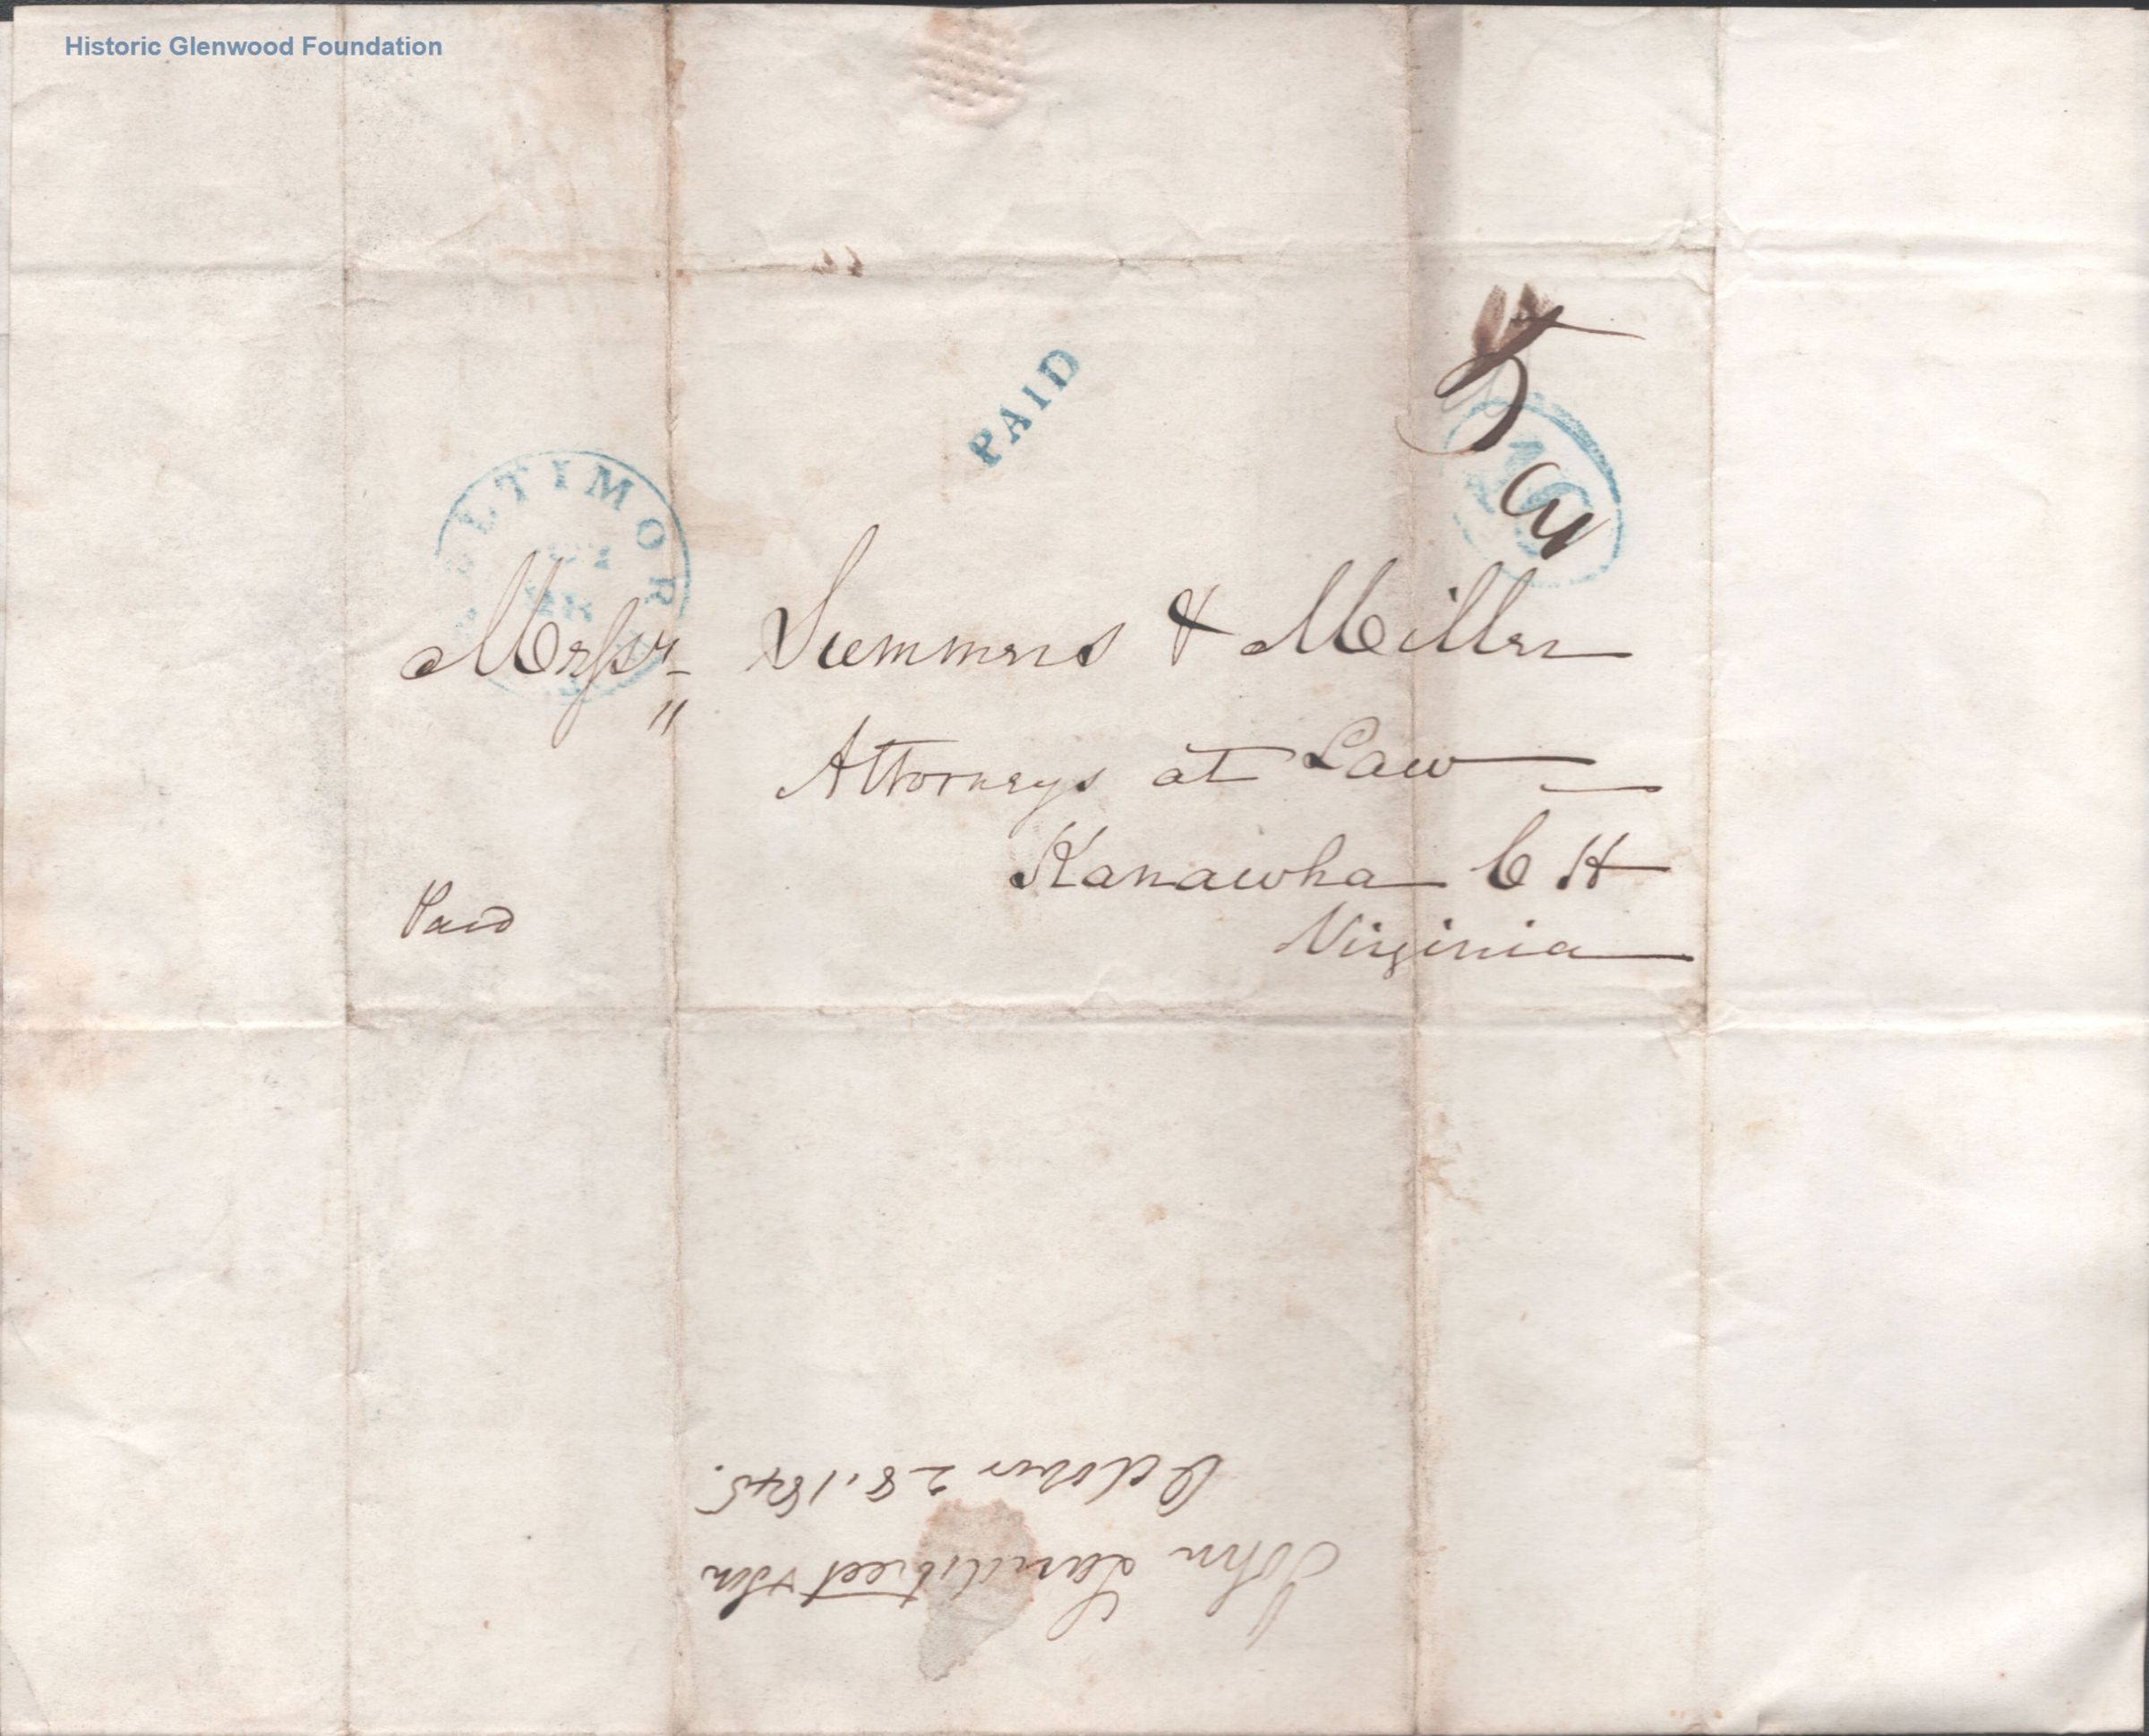 Historic Glenwood Foundation
PAID
BALTIMORE
OCT
28
10
5
Messrs Summers & Miller
Attorneys at Law
Kanawha C H
Virginia
Paid
John Landstreet & Son
October 28, 1845.